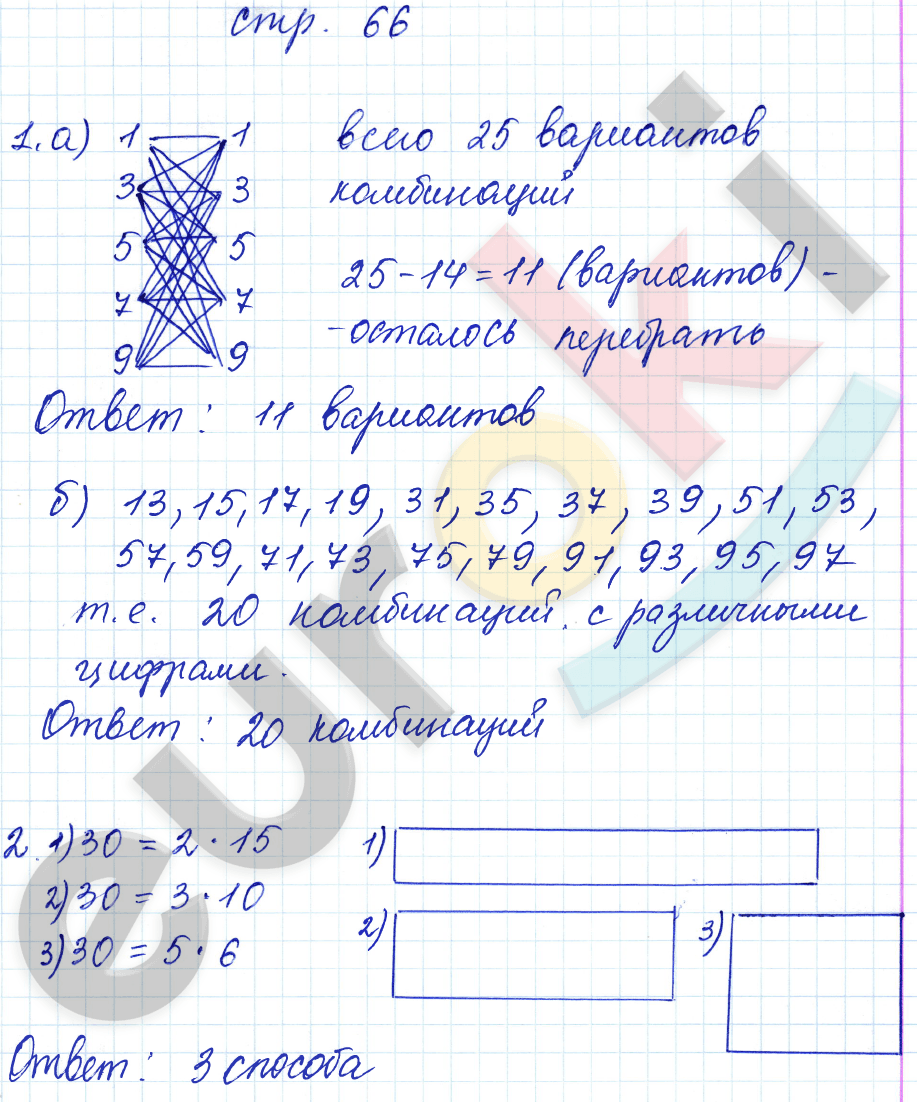 стр. 66
1. а) 1 1 всего 25 вариантов
3 3 комбинаций
5 5 25-14=11 (вариантов) -
7 7 -осталось перебрать
9 9
Ответ: 11 вариантов
б) 13, 15, 17, 19, 31, 35, 37, 39, 51, 53,
57, 59, 71, 73, 75, 79, 91, 93, 95, 97
т.е. 20 комбинаций с различными
цифрами.
Ответ: 20 комбинаций
2. 1) 30 = 2·15 1)
2) 30 = 3·10 2) 3)
3) 30 = 5·6
Ответ: 3 способа
euroki